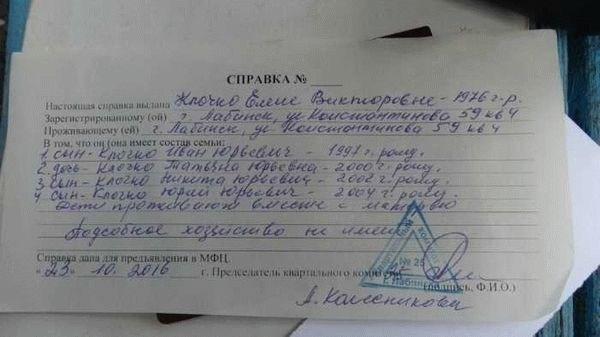 СПРАВКА №
Настоящая справка выдана Клочко Елене Викторовне - 1976 г.р.
Зарегистрированному (ой) г. Лабинск, ул Константинова 59 кв 4
Проживающему (ей) г. Лабинск, ул Константинова 59 кв 4
В том, что он (она имеет состав семьи:
1. сын - Клочко Иван Юрьевич - 1997 г. рожд.
2 дочь - Клочко Татьяна Юрьевна - 2000 г. рожд.
3 сын - Клочко Никита Юрьевич - 2002 г. рожд.
4 сын - Клочко Юрий Юрьевич - 2004 г. рожд.
Дети проживают вместе с матерью
Подсобное хозяйство не имеет
Справка дана для предъявления в МФЦ.
"23" 10. 2016 г. Председатель квартального комитета
№ 25
г. Лабинск
(подпись, Ф.И.О.)
А. Колесникова